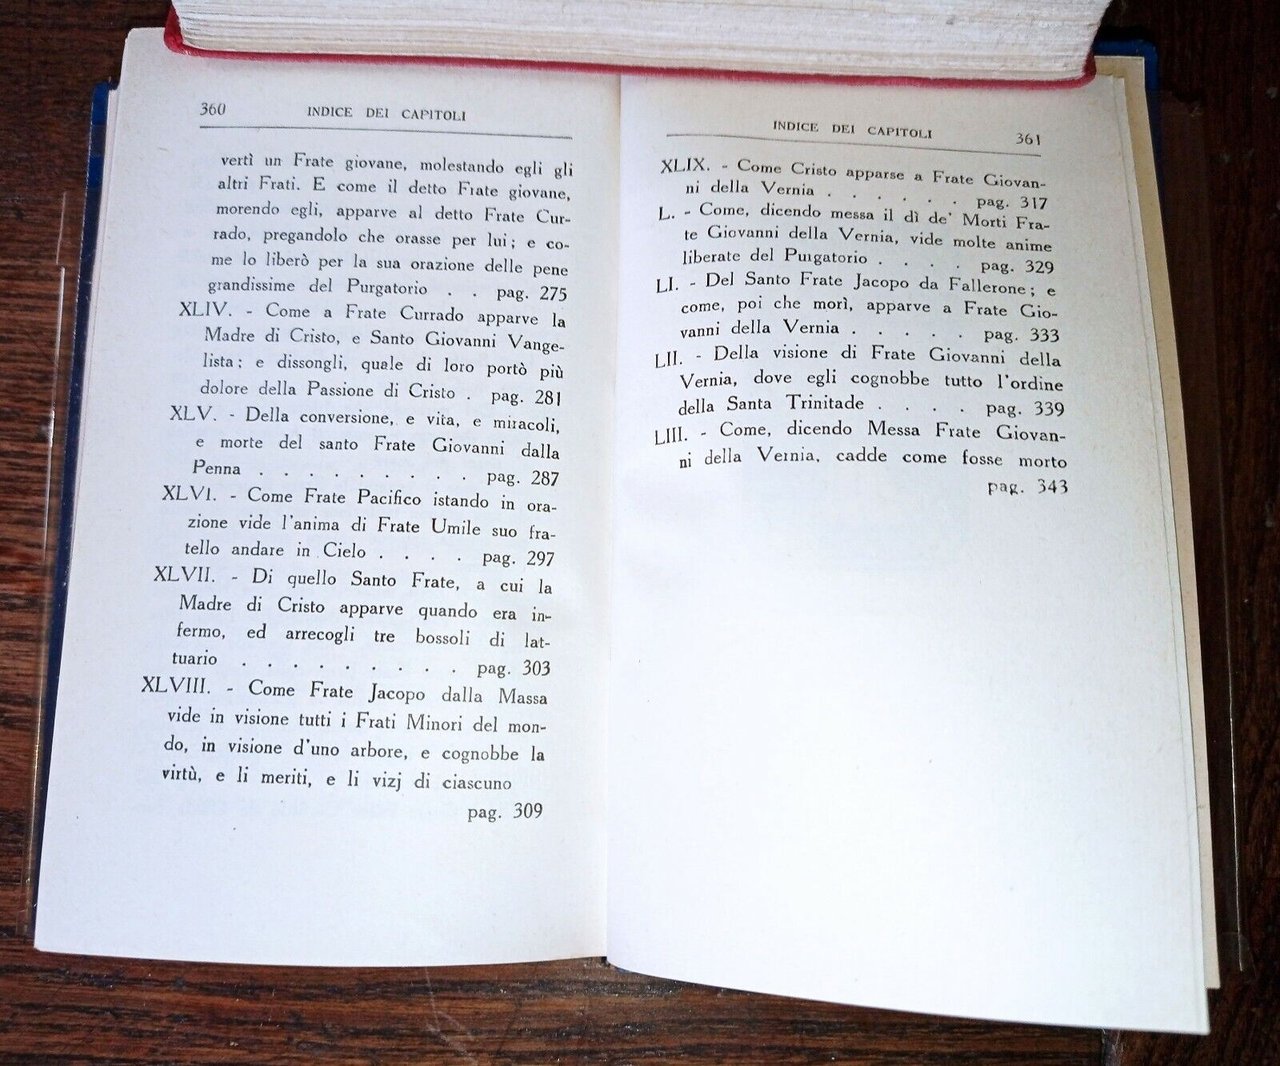 360 INDICE DEI CAPITOLI
vertì un Frate giovane, molestando egli gli
altri Frati. E come il detto Frate giovane,
morendo egli, apparve al detto Frate Cur-
rado, pregandolo che orasse per lui; e co-
me lo liberò per la sua orazione delle pene
grandissime del Purgatorio . . pag. 275
XLIV. - Come a Frate Currado apparve la
Madre di Cristo, e Santo Giovanni Vange-
lista; e dissongli, quale di loro portò più
dolore della Passione di Cristo . pag. 281
XLV. - Della conversione, e vita, e miracoli,
e morte del santo Frate Giovanni dalla
Penna . . . . . . . . pag. 287
XLVI. - Come Frate Pacifico istando in ora-
zione vide l'anima di Frate Umile suo fra-
tello andare in Cielo . . . . pag. 297
XLVII. - Di quello Santo Frate, a cui la
Madre di Cristo apparve quando era in-
fermo, ed arrecogli tre bossoli di lat-
tuario . . . . . . . . . pag. 303
XLVIII. - Come Frate Jacopo dalla Massa
vide in visione tutti i Frati Minori del mon-
do, in visione d'uno arbore, e cognobbe la
virtù, e li meriti, e li vizj di ciascuno
pag. 309
INDICE DEI CAPITOLI 361
XLIX. - Come Cristo apparse a Frate Giovan-
ni della Vernia . . . . . . pag. 317
L. - Come, dicendo messa il dì de' Morti Fra-
te Giovanni della Vernia, vide molte anime
liberate del Purgatorio . . . . pag. 329
LI. - Del Santo Frate Jacopo da Fallerone; e
come, poi che morì, apparve a Frate Gio-
vanni della Vernia . . . . . pag. 333
LII. - Della visione di Frate Giovanni della
Vernia, dove egli cognobbe tutto l'ordine
della Santa Trinitade . . . . pag. 339
LIII. - Come, dicendo Messa Frate Giovan-
ni della Vernia, cadde come fosse morto
pag. 343